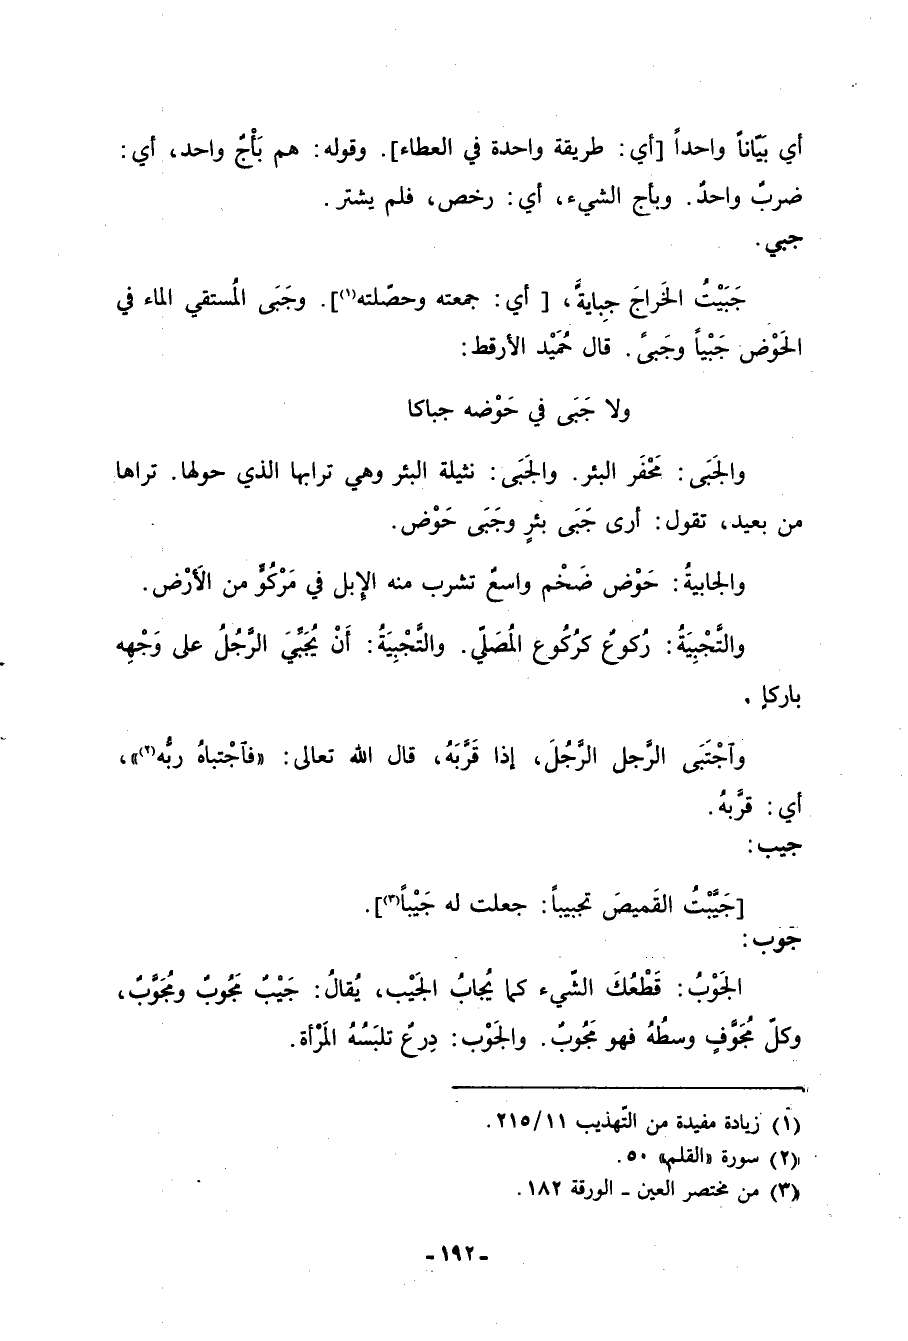 أي بَيّاناً واحداً [أي: طريقة واحدة في العطاء]. وقوله: هم بَأْجٌ واحد، أي:
ضربٌ واحدٌ. وبأج الشيء، أي: رخص، فلم يشتر.
جبي.
جَبَيْتُ الخَراجَ جِبايةً، [ أي: جمعته وحصّلته(١)]. وجَبَى المُستقي الماء في
الحَوْض جَبْياً وجَبىً. قال حُمَيْد الأرقط:
ولا جَبَى في حَوْضه جباكا
والجَبَى: مَحْفَر البئر. والجَبَى: نثيلة البئر وهي ترابها الذي حولها. تراها
من بعيد، تقول: أرى جَبَى بئرٍ وجَبَى حَوْض.
والجابيةُ: حَوْض ضَخْم واسعٌ تشرب منه الإبل في مَرْكُوٍّ من الأَرْض.
والتَّجْبِيَةُ: رُكوعٌ كرُكُوع المُصَلّي. والتَّجْبِيَةُ: أَنْ يُجَبِّيَ الرَّجُلُ على وَجْهِه
باركاً.
وآجْتَبَى الرَّجل الرَّجُلَ، إذا قَرَّبَهُ، قال الله تعالى: «فآجْتباهُ ربُّه(٢)»،
أي: قرَّبهُ.
جيب:
[جَيَّبْتُ القَميصَ تجييباً: جعلت له جَيْباً(٣)].
جوب:
الجَوْبُ: قَطْعُكَ الشّيء كما يُجابُ الجَيْب، يُقالُ: جَيْبٌ مَجُوبٌ ومُجَوَّبٌ،
وكلّ مُجَوَّفٍ وسطُهُ فهو مَجُوبٌ. والجَوْب: دِرعٌ تلبَسُهُ المَرْأة.
(١) زيادة مفيدة من التّهذيب ٢١٥/١١.
(٢) سورة «القلم» ٥٠.
(٣) من مختصر العين ـ الورقة ١٨٢.
ـ ١٩٢ ـ